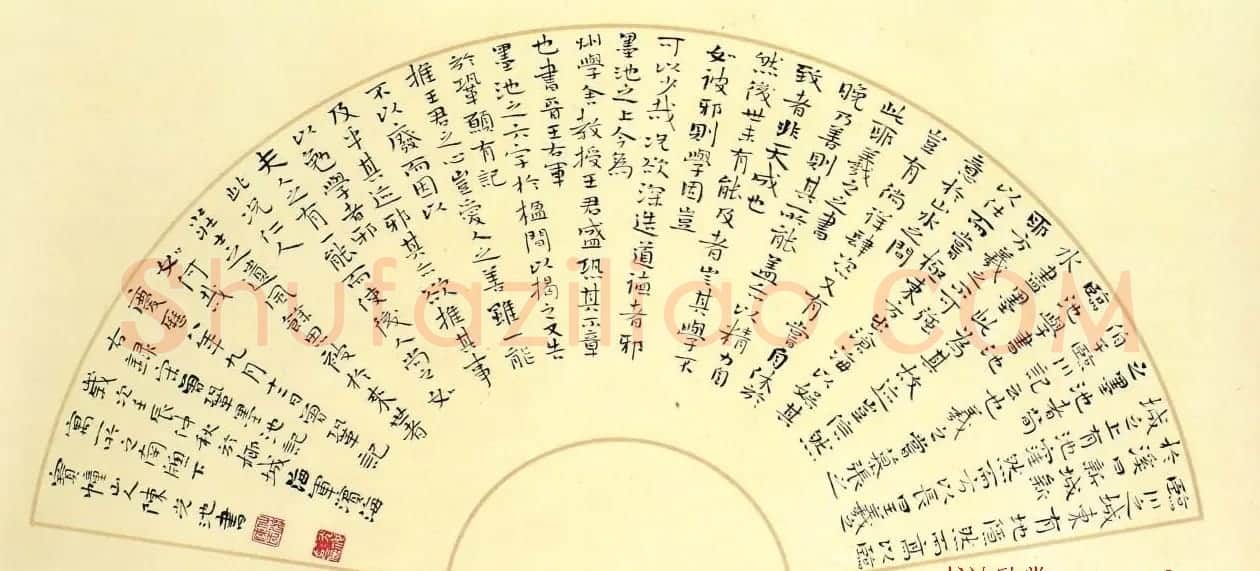 臨川之城東有地隱然而高以臨
於溪曰新城新
城之上有池窪然而方以長曰王羲之
之墨池者荀
伯子臨川記云也羲之嘗慕張芝
臨池學書池
水盡墨此池為其故迹豈信然
耶方羲之之不可強
以仕而嘗極東方出滄海以娛其
意於山水之間
豈有徜徉肆恣又嘗自休於
此耶羲之之書
晚乃善則其所能蓋亦以精力自
致者非天成也
然後世未有能及者豈其學不
如彼邪則學固豈
可以少哉況欲深造道德者邪
墨池之上今為
州學舍教授王君盛恐其不章
也書晉王右軍
墨池之六字於楹間以揭之又告
於鞏願有記
推王君之心豈愛人之善雖一能
不以廢而因以
及乎其迹邪其亦欲推其事
以勉學者邪
夫人之有一能而使後人尚之如
此況仁人
莊士之遺風餘思被於來世者
如何哉
慶曆八年九月十二日曾鞏記
右錄宋曾鞏墨池記
歲次壬辰中秋於榕城海軍濱海
寓所之南窗下
寶幢山人陳池書
Shufaziliao.COM